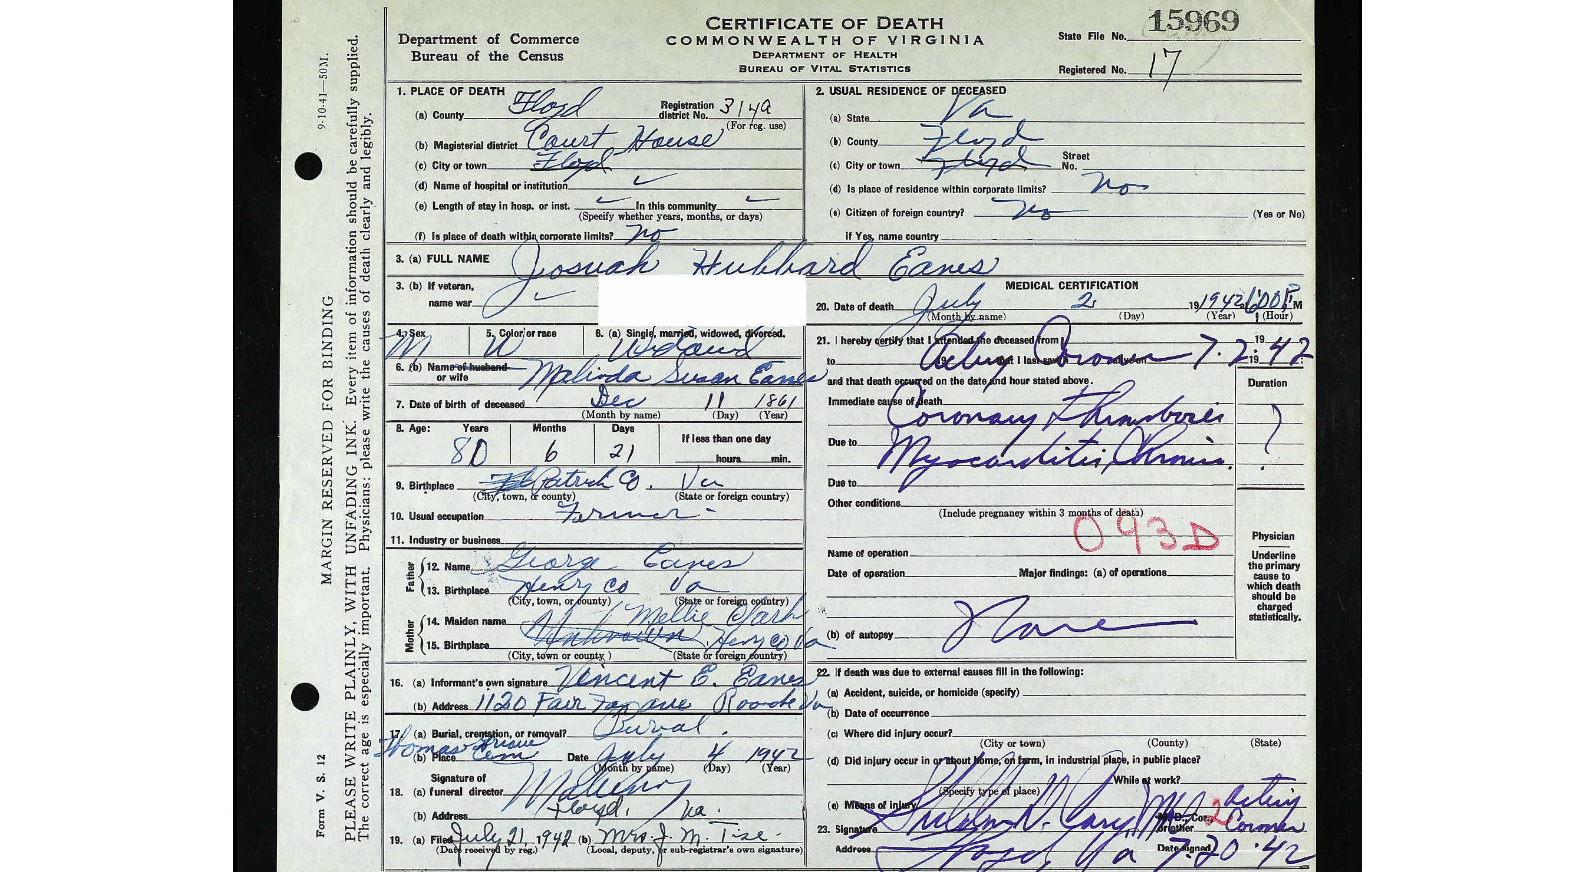 CERTIFICATE OF DEATH
COMMONWEALTH OF VIRGINIA
DEPARTMENT OF HEALTH
BUREAU OF VITAL STATISTICS
Department of Commerce
Bureau of the Census
State File No. 15969
Registered No. 17
9-10-41—50M.
MARGIN RESERVED FOR BINDING
PLEASE WRITE PLAINLY, WITH UNFADING INK. Every item of information should be carefully supplied.
The correct age is especially important. Physicians: please write the causes of death clearly and legibly.
Form V. S. 12
1. PLACE OF DEATH
(a) County Floyd Registration district No. 314a
(For reg. use)
(b) Magisterial district Court House
(c) City or town Floyd
(d) Name of hospital or institution
(e) Length of stay in hosp. or inst. In this community
(Specify whether years, months, or days)
(f) Is place of death within corporate limits? no
2. USUAL RESIDENCE OF DECEASED
(a) State Va
(b) County Floyd
(c) City or town Floyd Street No.
(d) Is place of residence within corporate limits? No
(e) Citizen of foreign country? No (Yes or No)
If Yes, name country
3. (a) FULL NAME Josuah Hubbard Eanes
3. (b) If veteran, name war
4. Sex M
5. Color or race W
6. (a) Single, married, widowed, divorced.
6. (b) Name of husband or wife Malinda Susan Eanes
7. Date of birth of deceased Dec 11 1861
(Month by name) (Day) (Year)
8. Age: Years Months Days If less than one day
80 6 21 hours min.
9. Birthplace Patrick Co. Va
(City, town, or county) (State or foreign country)
10. Usual occupation Farmer
11. Industry or business
Father
12. Name George Eanes
13. Birthplace Henry Co Va
(City, town, or county) (State or foreign country)
Mother
14. Maiden name Mellie Clark
Unknown
15. Birthplace Henry Co Va
(City, town or county) (State or foreign country)
16. (a) Informant's own signature Vincent E. Eanes
(b) Address 1120 Fair ave Va
17. (a) Burial, cremation, or removal? Burial
(b) Place Thomas Grove Cem Date July 4 1942
(Month by name) (Day) (Year)
18. Signature of (a) funeral director
(b) Address Floyd, Va.
19. (a) Filed July 21, 1942 (b) Mrs. J. M.
(Date received by reg.) (Local, deputy, or sub-registrar's own signature)
MEDICAL CERTIFICATION
20. Date of death July 2 1942 6:00 P M
(Month by name) (Day) (Year) (Hour)
21. I hereby certify that I attended the deceased from 19
to 19 that I last saw alive on 19
Coroner 7.2.42
and that death occurred on the date and hour stated above.
Duration
Immediate cause of death
Coronary Thrombosis
Due to Myocarditis, Chronic. ?
Due to
Other conditions
(Include pregnancy within 3 months of death)
093D
Name of operation
Date of operation Major findings: (a) of operations
(b) of autopsy None
Physician
Underline the primary cause to which death should be charged statistically.
22. If death was due to external causes fill in the following:
(a) Accident, suicide, or homicide (specify)
(b) Date of occurrence
(c) Where did injury occur?
(City or town) (County) (State)
(d) Did injury occur in or about home, on farm, in industrial place, in public place?
While at work?
(Specify type of place)
(e) Means of injury
23. Signature M.D., Cor., or other Acting Coroner
2
Address Floyd, Va Date signed 7.20.42